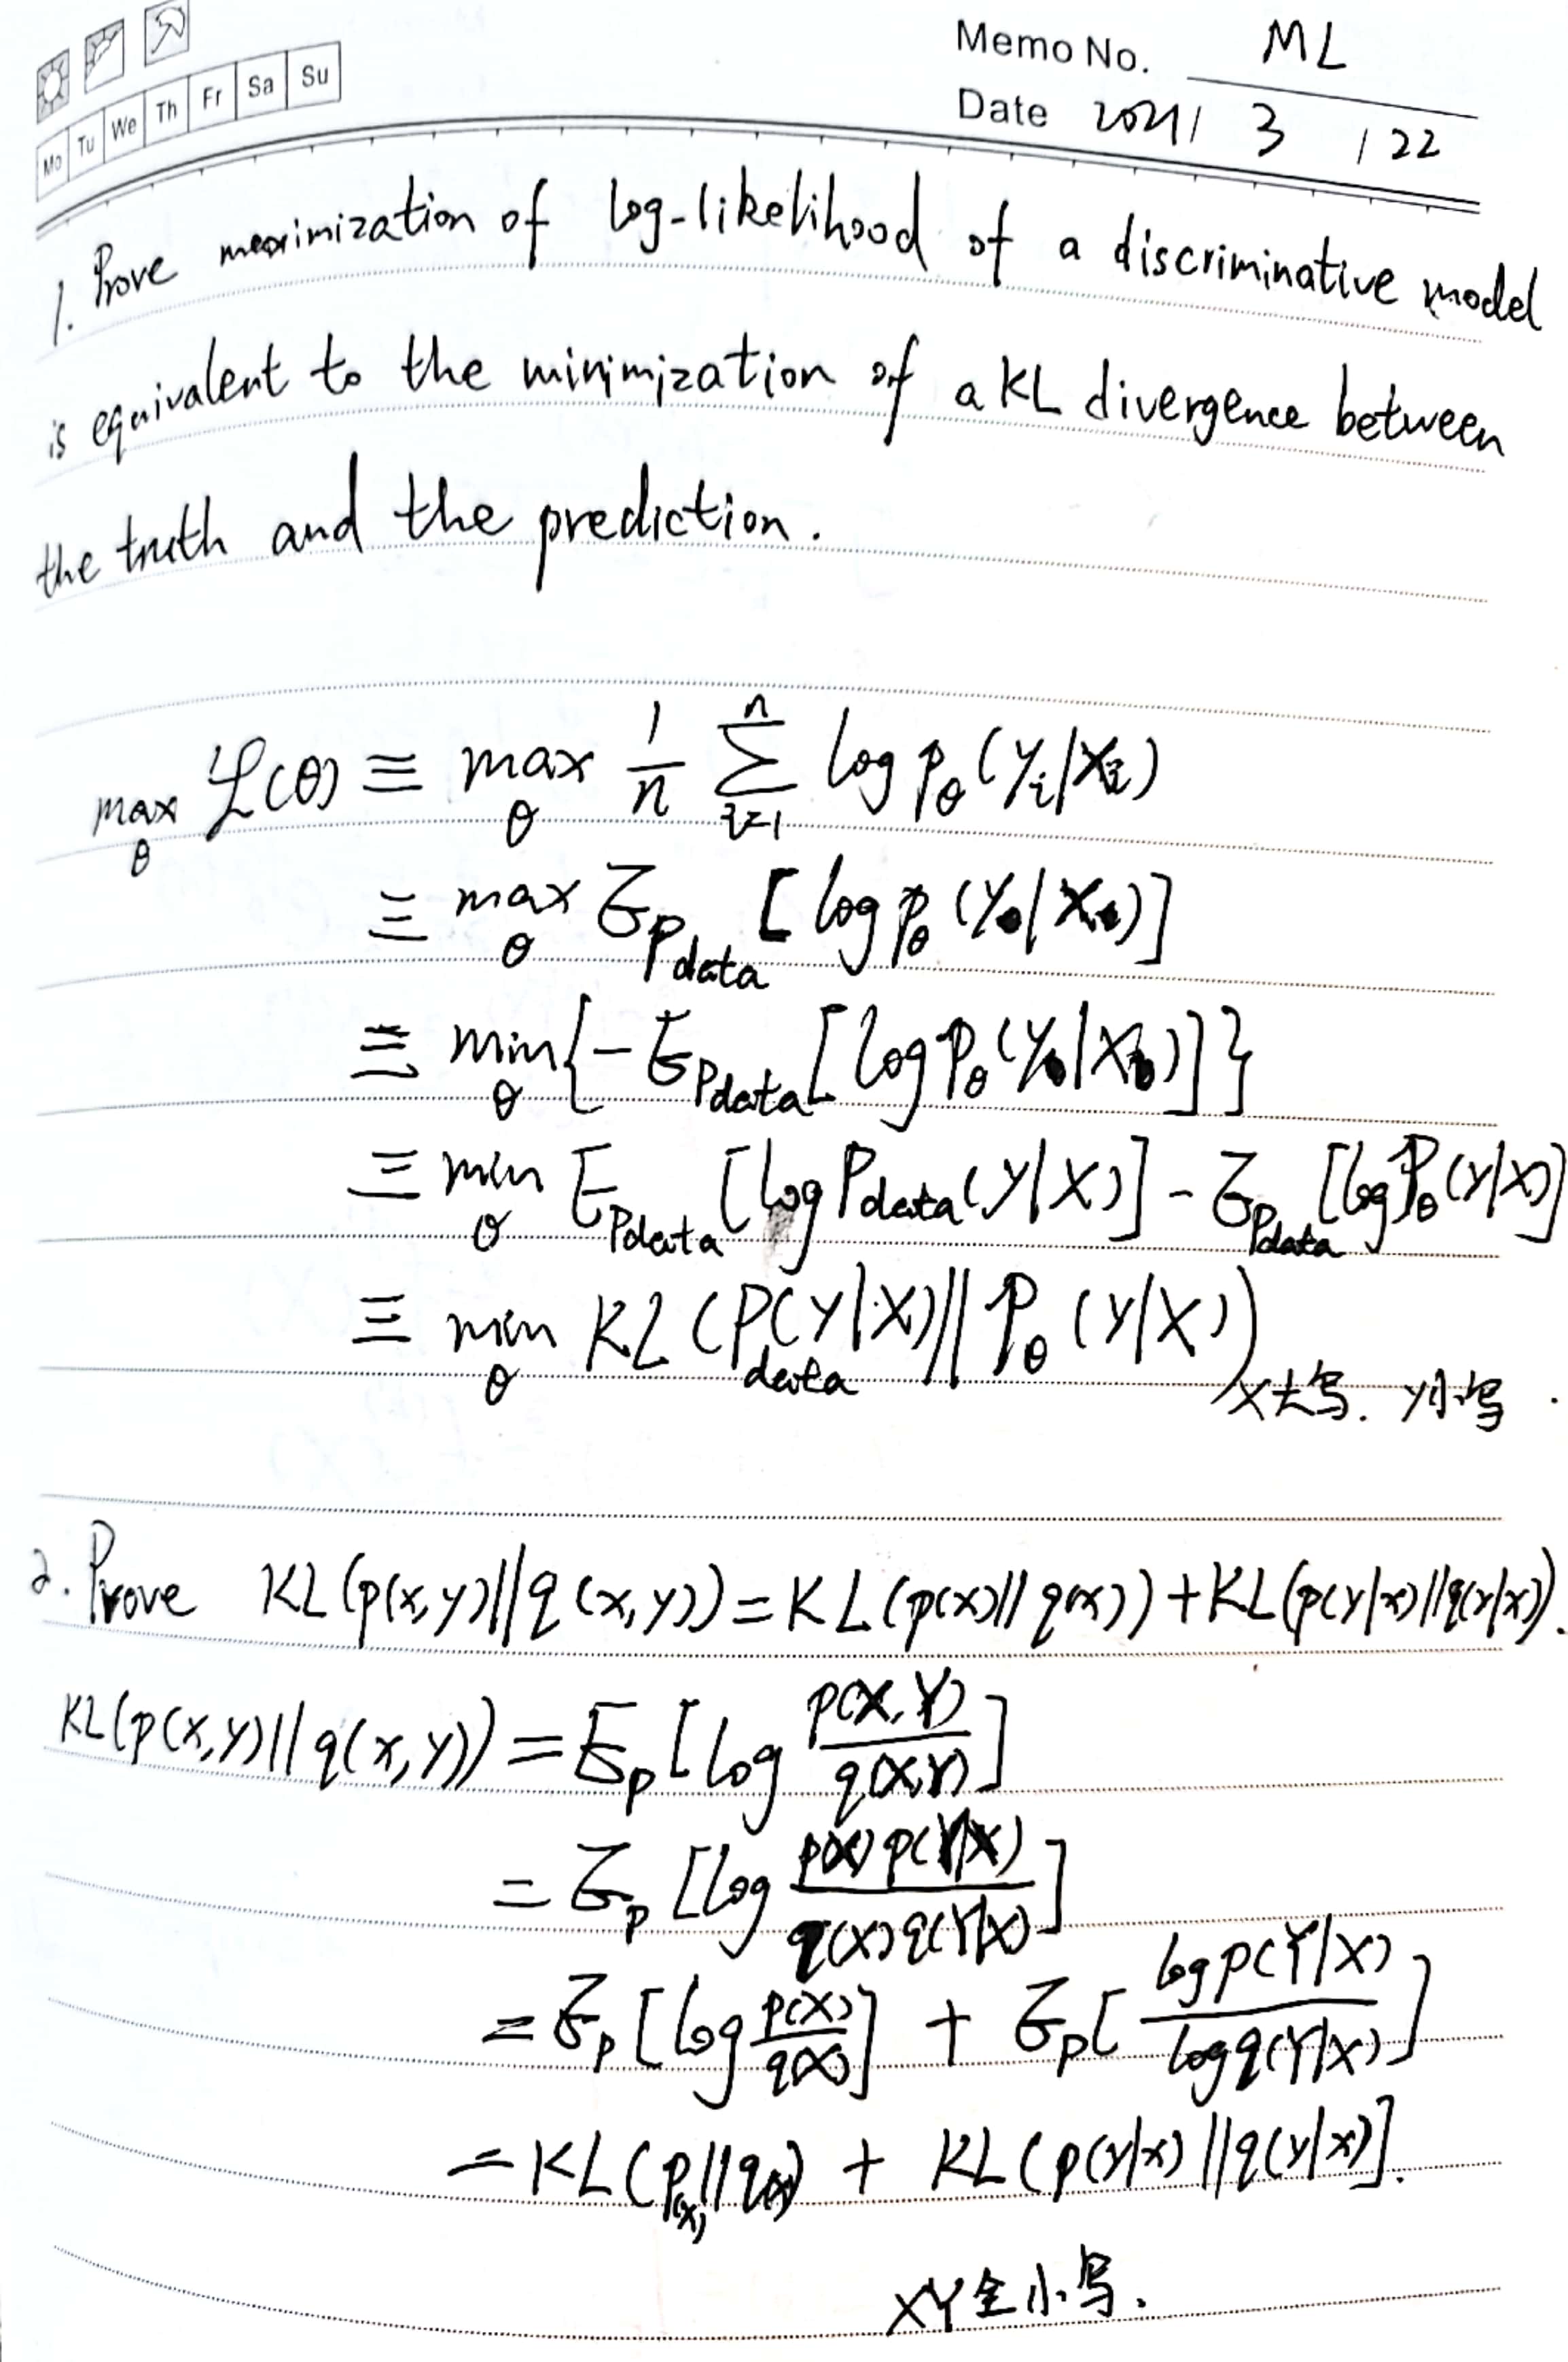 Memo No. ML
Mo Tu We Th Fr Sa Su
Date 2021 / 3 / 22
1. Prove maximization of log-likelihood of a discriminative model
is equivalent to the minimization of a KL divergence between
the truth and the prediction.
max_θ ℒ(θ) ≡ max_θ 1/n ∑_{i=1}^{n} log p_θ(y_i|X_i)
≡ max_θ E_{Pdata} [log p_θ(y|X)]
≡ min_θ {-E_{Pdata}[log p_θ(y|X)]}
≡ min_θ E_{Pdata}[log Pdata(y|X)] - E_{Pdata}[log P_θ(y|X)]
≡ min_θ KL(P_data(y|X)||P_θ(y|X))
X大写. y小写.
2. Prove KL(p(x,y)||q(x,y)) = KL(p(x)||q(x)) + KL(p(y|x)||q(y|x)).
KL(p(x,y)||q(x,y)) = E_p[log p(X,Y)/q(X,Y)]
= E_p[log p(X)p(Y|X)/q(X)q(Y|X)]
= E_p[log p(X)/q(X)] + E_p[log p(Y|X)/log q(Y|X)]
= KL(p(x)||q(x)) + KL(p(y|x)||q(y|x)].
XY全小写.